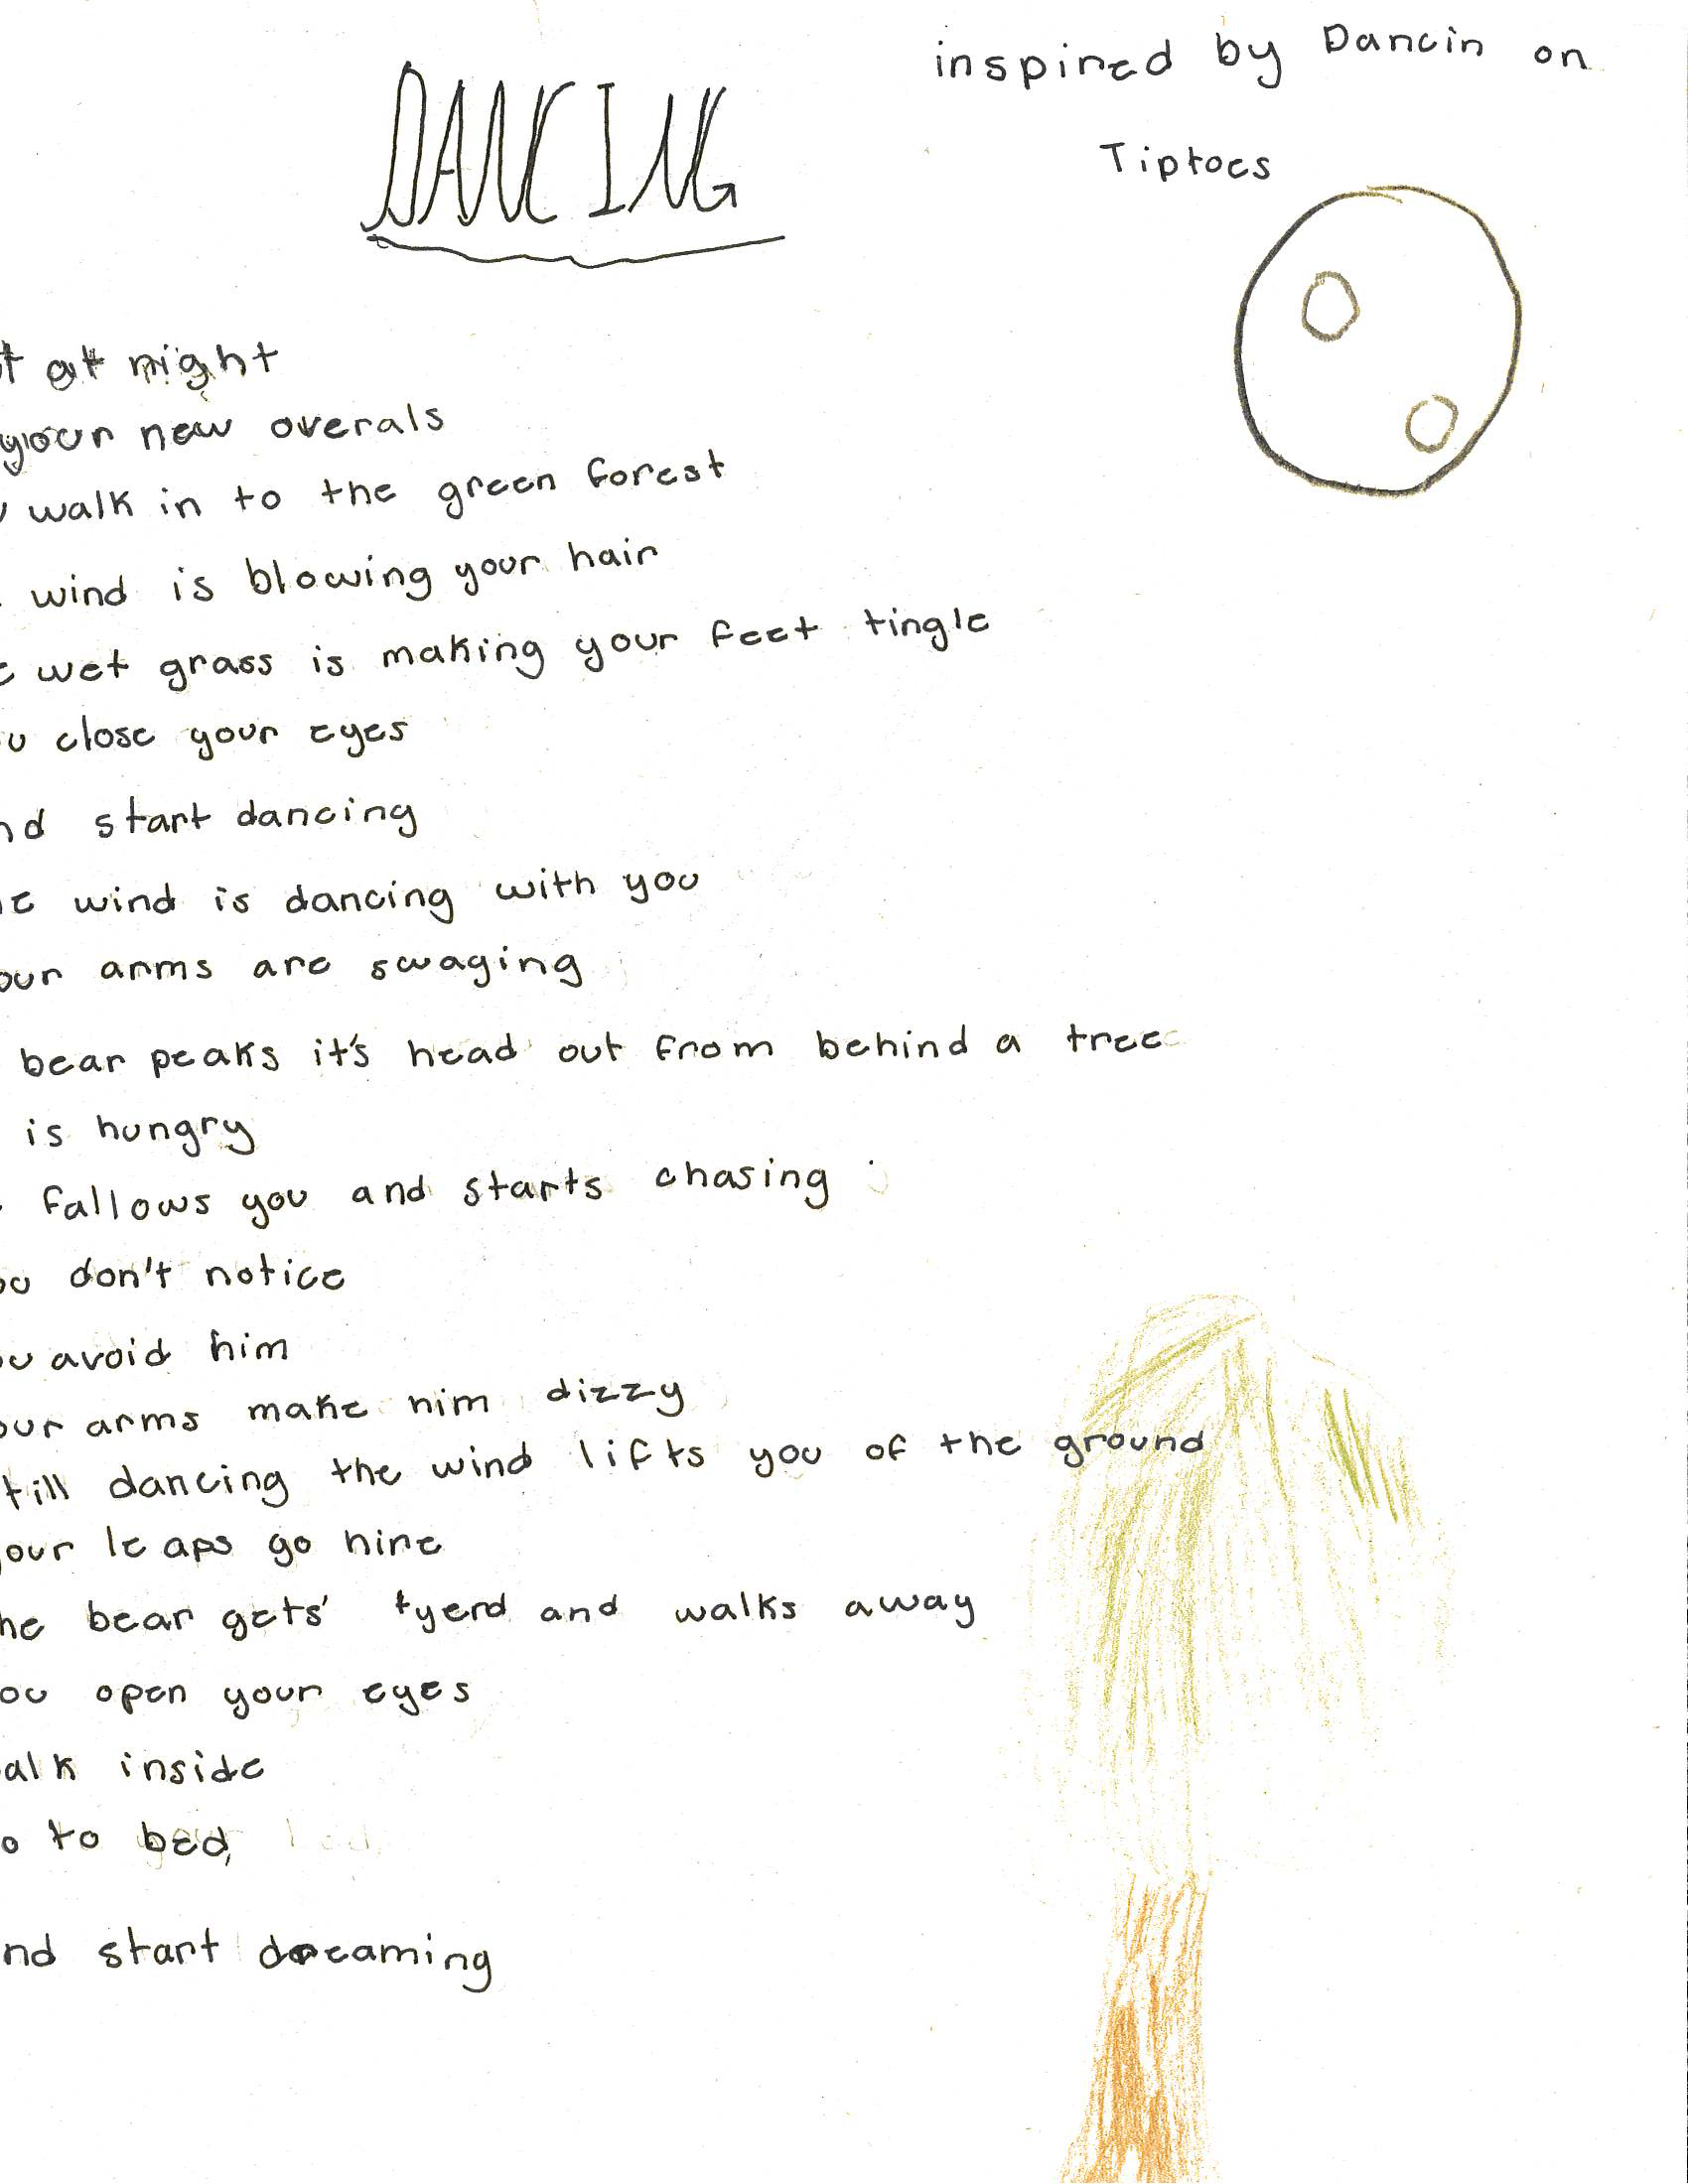 inspired by Dancin on
Tiptoes
DANCING
at night
your new overals
walk in to the green forest
wind is blowing your hair
wet grass is making your feet tingle
u close your eyes
nd start dancing
wind is dancing with you
our arms are swaging
bear peaks it's head out from behind a tree
is hungry
fallows you and starts chasing
ou don't notice
ou avoid him
our arms make him dizzy
till dancing the wind lifts you of the ground
our leaps go hire
he bear gets' tyerd and walks away
ou open your eyes
alk inside
o to bed,
nd start dreaming